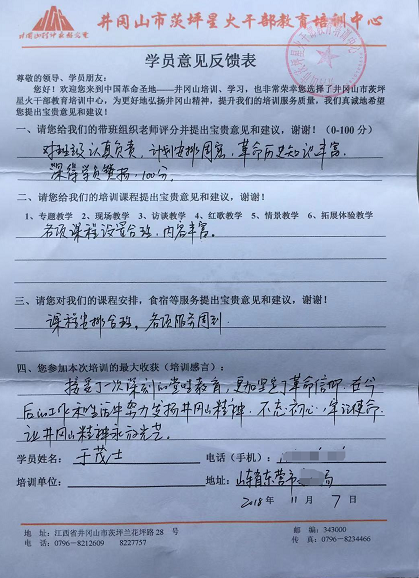 井冈山市茨坪星火干部教育培训中心
学员意见反馈表
尊敬的领导、学员朋友：
您好！欢迎您来到中国革命圣地——井冈山培训、学习，也非常荣幸您选择了井冈山市茨坪星
火干部教育培训中心，为更好地弘扬井冈山精神，提升我们的培训服务质量，我们真诚地希望
您提出宝贵意见和建议！
一、请您给我们的带班组织老师评分并提出宝贵意见和建议，谢谢！（0-100 分）
对班级认真负责，计划安排周密，革命历史知识丰富
深得学员赞扬，100分。
二、请您给我们的培训课程提出宝贵意见和建议，谢谢！
1、专题教学 2、现场教学 3、访谈教学 4、红歌教学 5、情景教学 6、拓展体验教学
各项课程设置合理，内容丰富。
三、请您对我们的课程安排，食宿等服务提出宝贵意见和建议，谢谢！
课程安排合理。各项服务周到
四、您参加本次培训的最大收获（培训感言）：
接受了一次深刻的党性教育，更加坚定了革命信仰，在今
后的工作和生活中努力发扬井冈山精神，不忘初心，牢记使命，
让井冈山精神永放光芒。
学员姓名：于茂士 电话（手机）：
培训单位： 地址：山东省东营市 局
2018年 11月 7日
地 址：江西省井冈山市茨坪兰花坪路 28 号 邮 编：343000
电 话：0796-8212609 8227757 传 真：0796-8234466